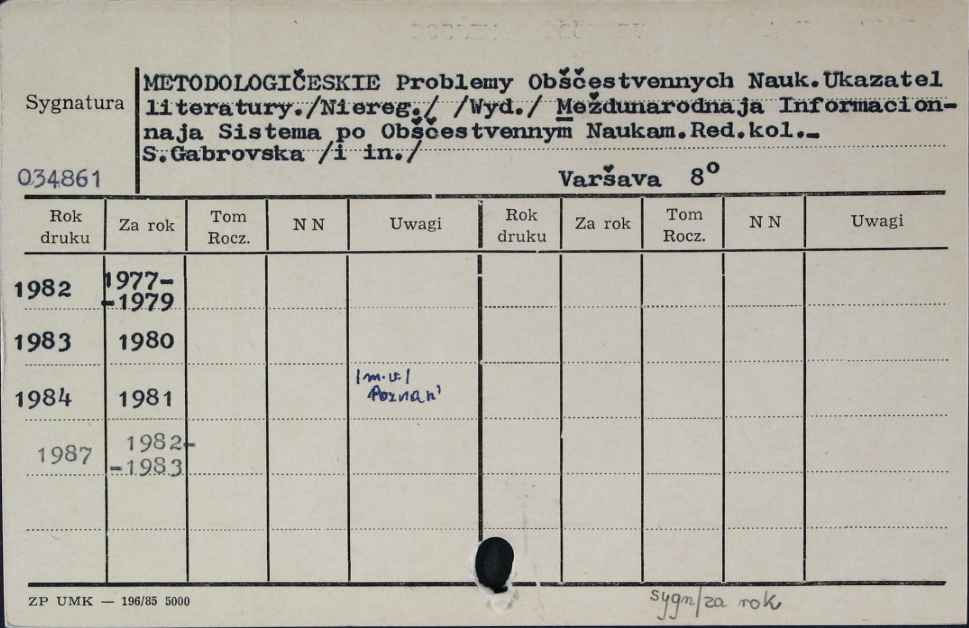 METODOLOGIČESKIE Problemy Obščestvennych Nauk.Ukazatel
Sygnatura
literatury./Niereg./ /Wyd./ Meždunarodnaja Informacion-
naja Sistema po Obščestvennym Naukam.Red.kol.-
S.Gabrovska /i in./
034861
Varšava 8º
Rok druku Za rok Tom Rocz. N N Uwagi Rok druku Za rok Tom Rocz. N N Uwagi
1982 1977-
-1979
1983 1980
/m.w./
1984 1981 Poznań
1987 1982-
-1983
ZP UMK — 196/85 5000
sygn/za rok